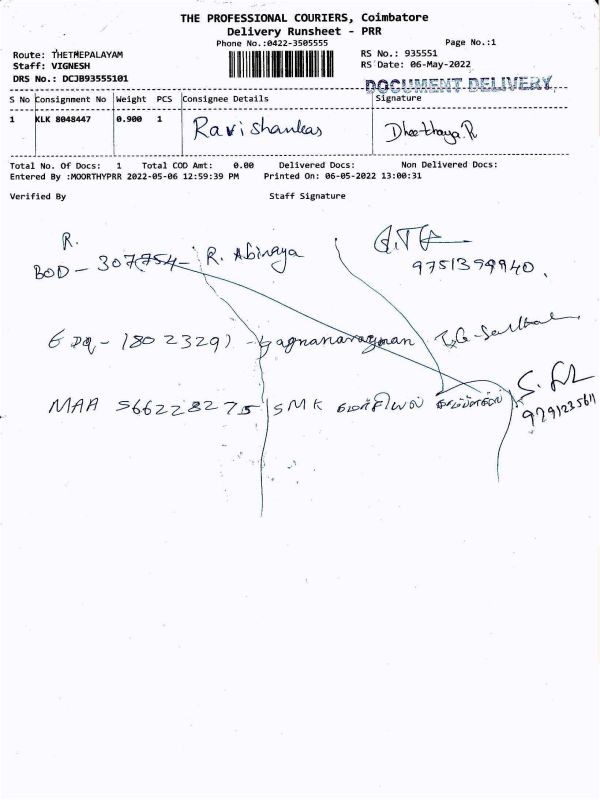 THE PROFESSIONAL COURIERS, Coimbatore
Delivery Runsheet - PRR
Phone No.:0422-3505555
Page No.:1
Route: THETHEPALAYAM
RS No.: 935551
Staff: VIGNESH
RS Date: 06-May-2022
DRS No.: DCJB93555101
DOCUMENT DELIVERY
S No Consignment No Weight PCS Consignee Details Signature
1 KLK 8048447 0.900 1 Ravi Shankar Dheekthaya.R
Total No. Of Docs: 1 Total COD Amt: 0.00 Delivered Docs: Non Delivered Docs:
Entered By :MOORTHYPRR 2022-05-06 12:59:39 PM Printed On: 06-05-2022 13:00:31
Verified By Staff Signature
R.
BOD - 307754 - R. Abinaya
9751399940.
180 23291 - gagnanarayanan
MAA 566228275 SMK
9791235611